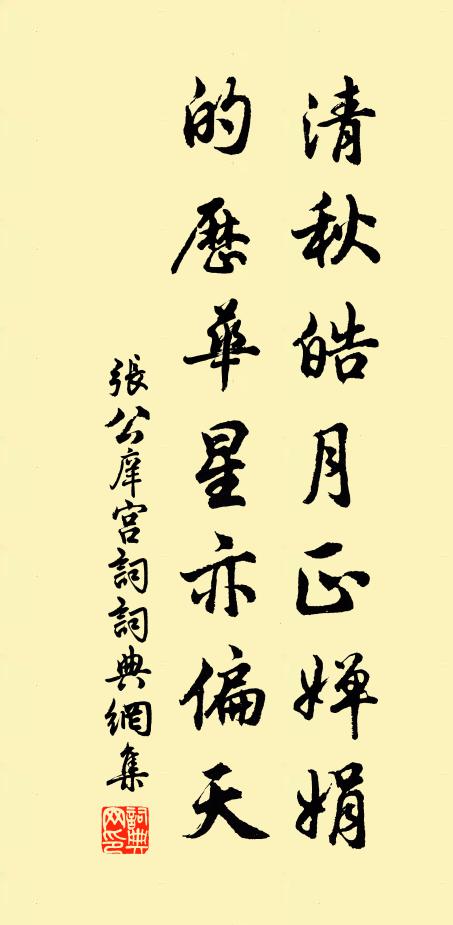 清秋皓月正婵娟
的歷華星亦偏天
張公庠宮詞詞典網集
詞典網印